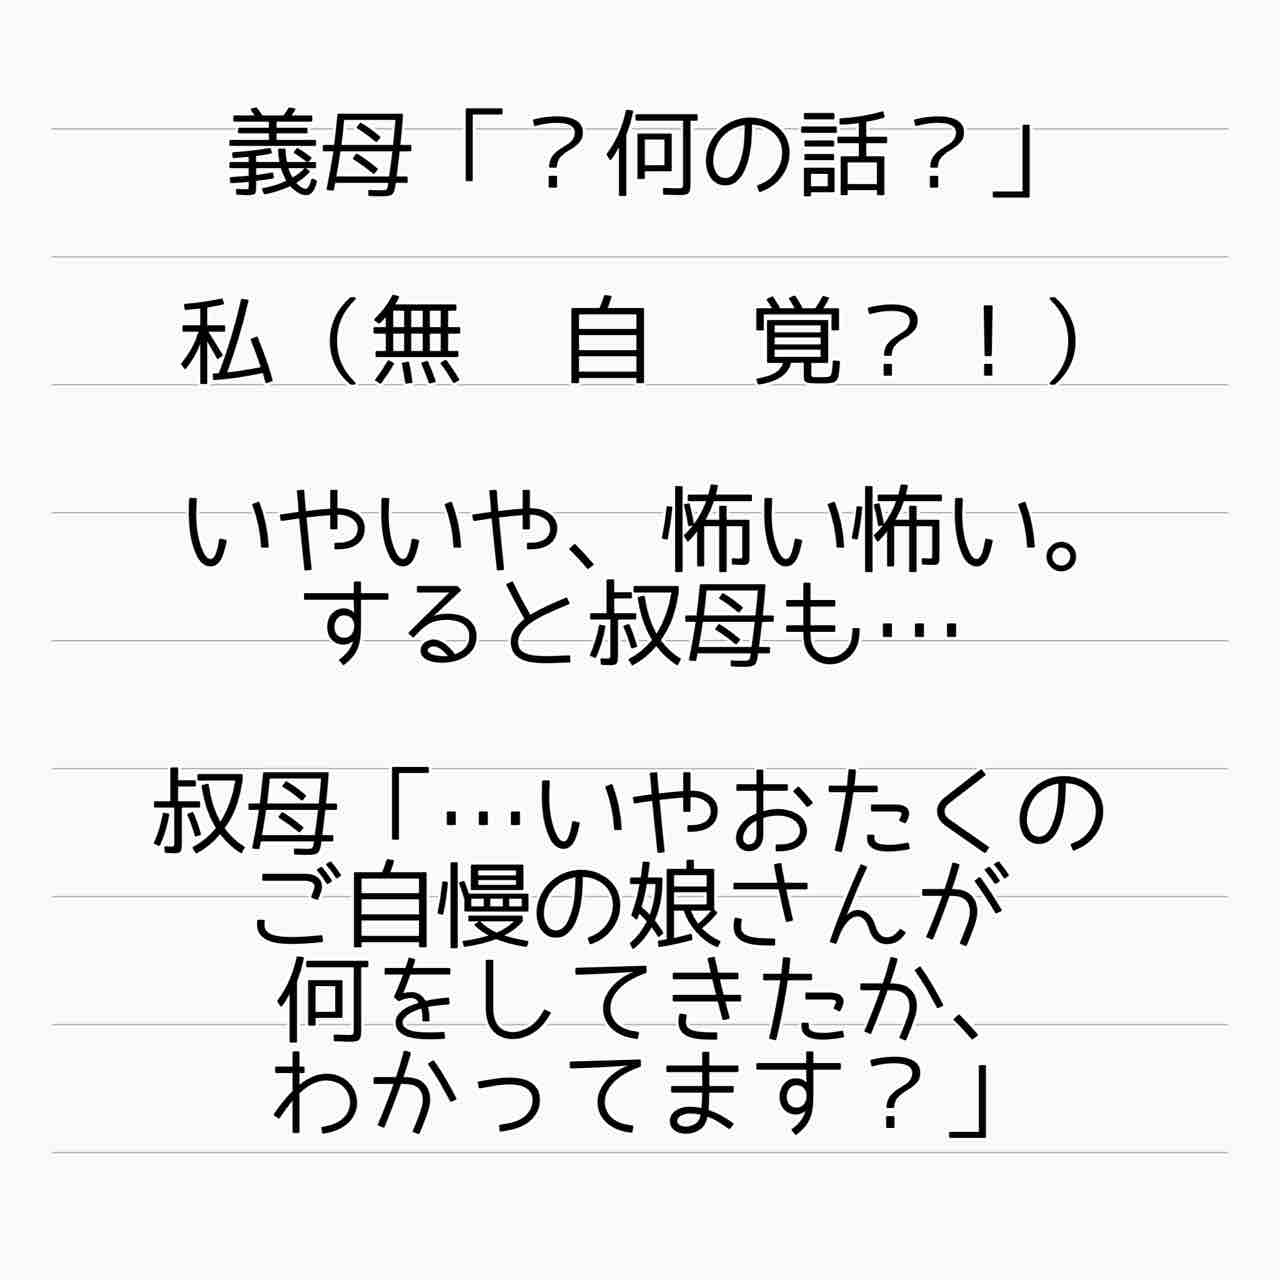 義母「？何の話？」
私（無　自　覚？！）
いやいや、怖い怖い。
すると叔母も…
叔母「…いやおたくの
ご自慢の娘さんが
何をしてきたか、
わかってます？」